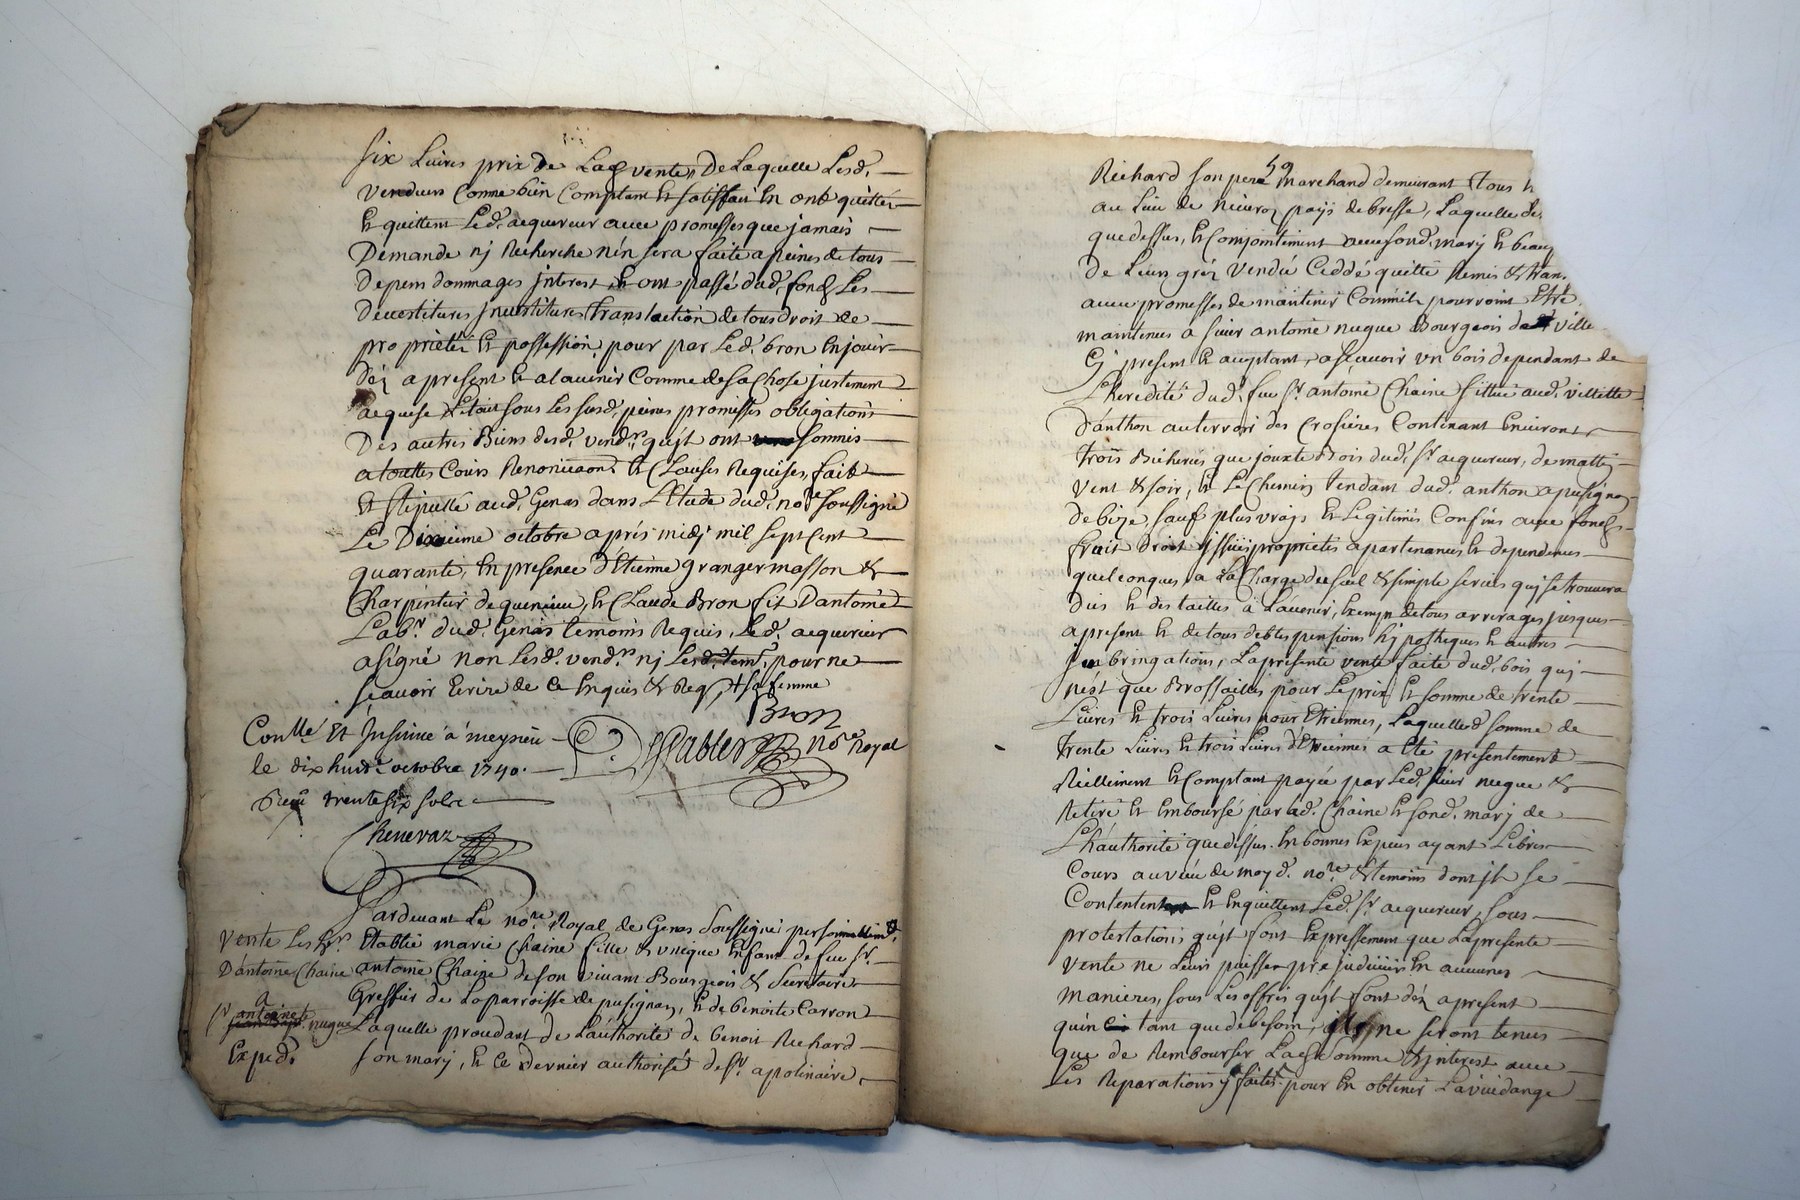 six Livres prix de Lad vente, De Laquelle Lesd.
Vendeurs Comme bien Comptent et satisffait En ont quittéz
Et quittent Led. acquereur avec promesses que jamais
Demande nj Recherche n'en sera faite a peines de tous
Depens dommages jnterest, et ont passé dud. fond Les
Devestitures jnvestitures translaction de tous droit de
proprieté et possession, pour par Led. bron En jouir
Déz apresent et al avenir Comme de sa Chose justement
acquese Et tout sous Les susd. peines promesses obligations
Des autres Biens desd. vendrs qu'jlt ont sommis
a touttes Cours Renonciaons. et Clauses Requises, fait
Et stipullé aud. Genas dans L'Etude dud. nore soussigné
Le Dixieme octobre aprés midj mil sept Cent
quarante, En presence d'Etienne granger masson &
Charpintier de , et Claude Bron fils D'antoine
Labr. dud. Genas temoins Requis, Led. acquereur
a signé non Lesd. vendrs nj Lesd. tems. pour ne
scavoir Ecrire de Ce Enquis & Req. + sa femme
Bron
Conllé Et Jnsinué á meyzieu
DesSables nore Royal
le dix huite. octobre 1740.
Receu trente six sols
Chenevaz
Pardevant Le nore. Royal de Genas soussigné personnellemt.
Vente Les hrs Etablie marie Chaine fille & unique Enfant de feu sr.
D'antoine Chaine antoine Chaine de son vivant Bourgeois & secretaire
Greffier de La parroisse de pusignan, et de benoite Carron
a sr antoine nugue Laquelle procedant de L'authorité de benoit Richard
Exped. son mary, et ce dernier authorisé de sr. apolinaire
Richard son pere Marchand demeurant tous
au Lieu de païs de bresse, Laquelle de
que dessus, et Conjointement avec sond. mary et beau
De Leurs gréz Vendu Ceddé quitté Remis &
avec promesses de maintenir Comm' pourroint Etre
maintenus a sieur antoine nugue Bourgeois de ville
Cy present et aceptant, a scavoir un bois dependant de
L'heredité dud. feu sr. antoine Chaine sittué aud. villette
D'anthon au terroir des Crosieres Contenant Environt
trois Bicherées que jouxte Bois dud. sr acquereur, de mattin
Vent & soir, et Le Chemin tendant dud. anthon a pusignan
de bize sauf plus vrays et Legitimes Confins avec fonds
fruit droit jssües proprietés apartenances et dependences
quelconques, a La Charge de & simple servis qu'j se trouvera
Dus et des tailles a L'avenir, Exempt de tous arrerages jusques
apresent et de tous debtes pensions hypotheques et autres
jmbringations, La presente vente faite dud. bois quj
n'est que Brossailles pour Le prix et somme de trente
Livres et trois Livres pour Etreinnes, Laquelled. somme de
trente Livres et trois Livres d'Etreinnes a eté presentement
Réellement et Comptant payée par Led. sieur nugue &
Retiré et Emboursé par lad. Chaine et sond. mary de
L'hauthorité que dessus. En bonnes Especes ayant Libre
Cours au vu de moyd. nore. & temoins dont jlt se
Contentent et Enquittent Led. sr. acquereur, sous
protestations qu'jlt font Expressement que La presente
Vente ne Leurs puisse préjudicier En aucunes
manieres, sous Les offres qu'jlt font déz apresent
qu'en tant que de besoin, jls ne seront tenus
que de Rembourser Lad. somme & jnterest avec
Les Reparations y faites pour En obtenir La vuidange